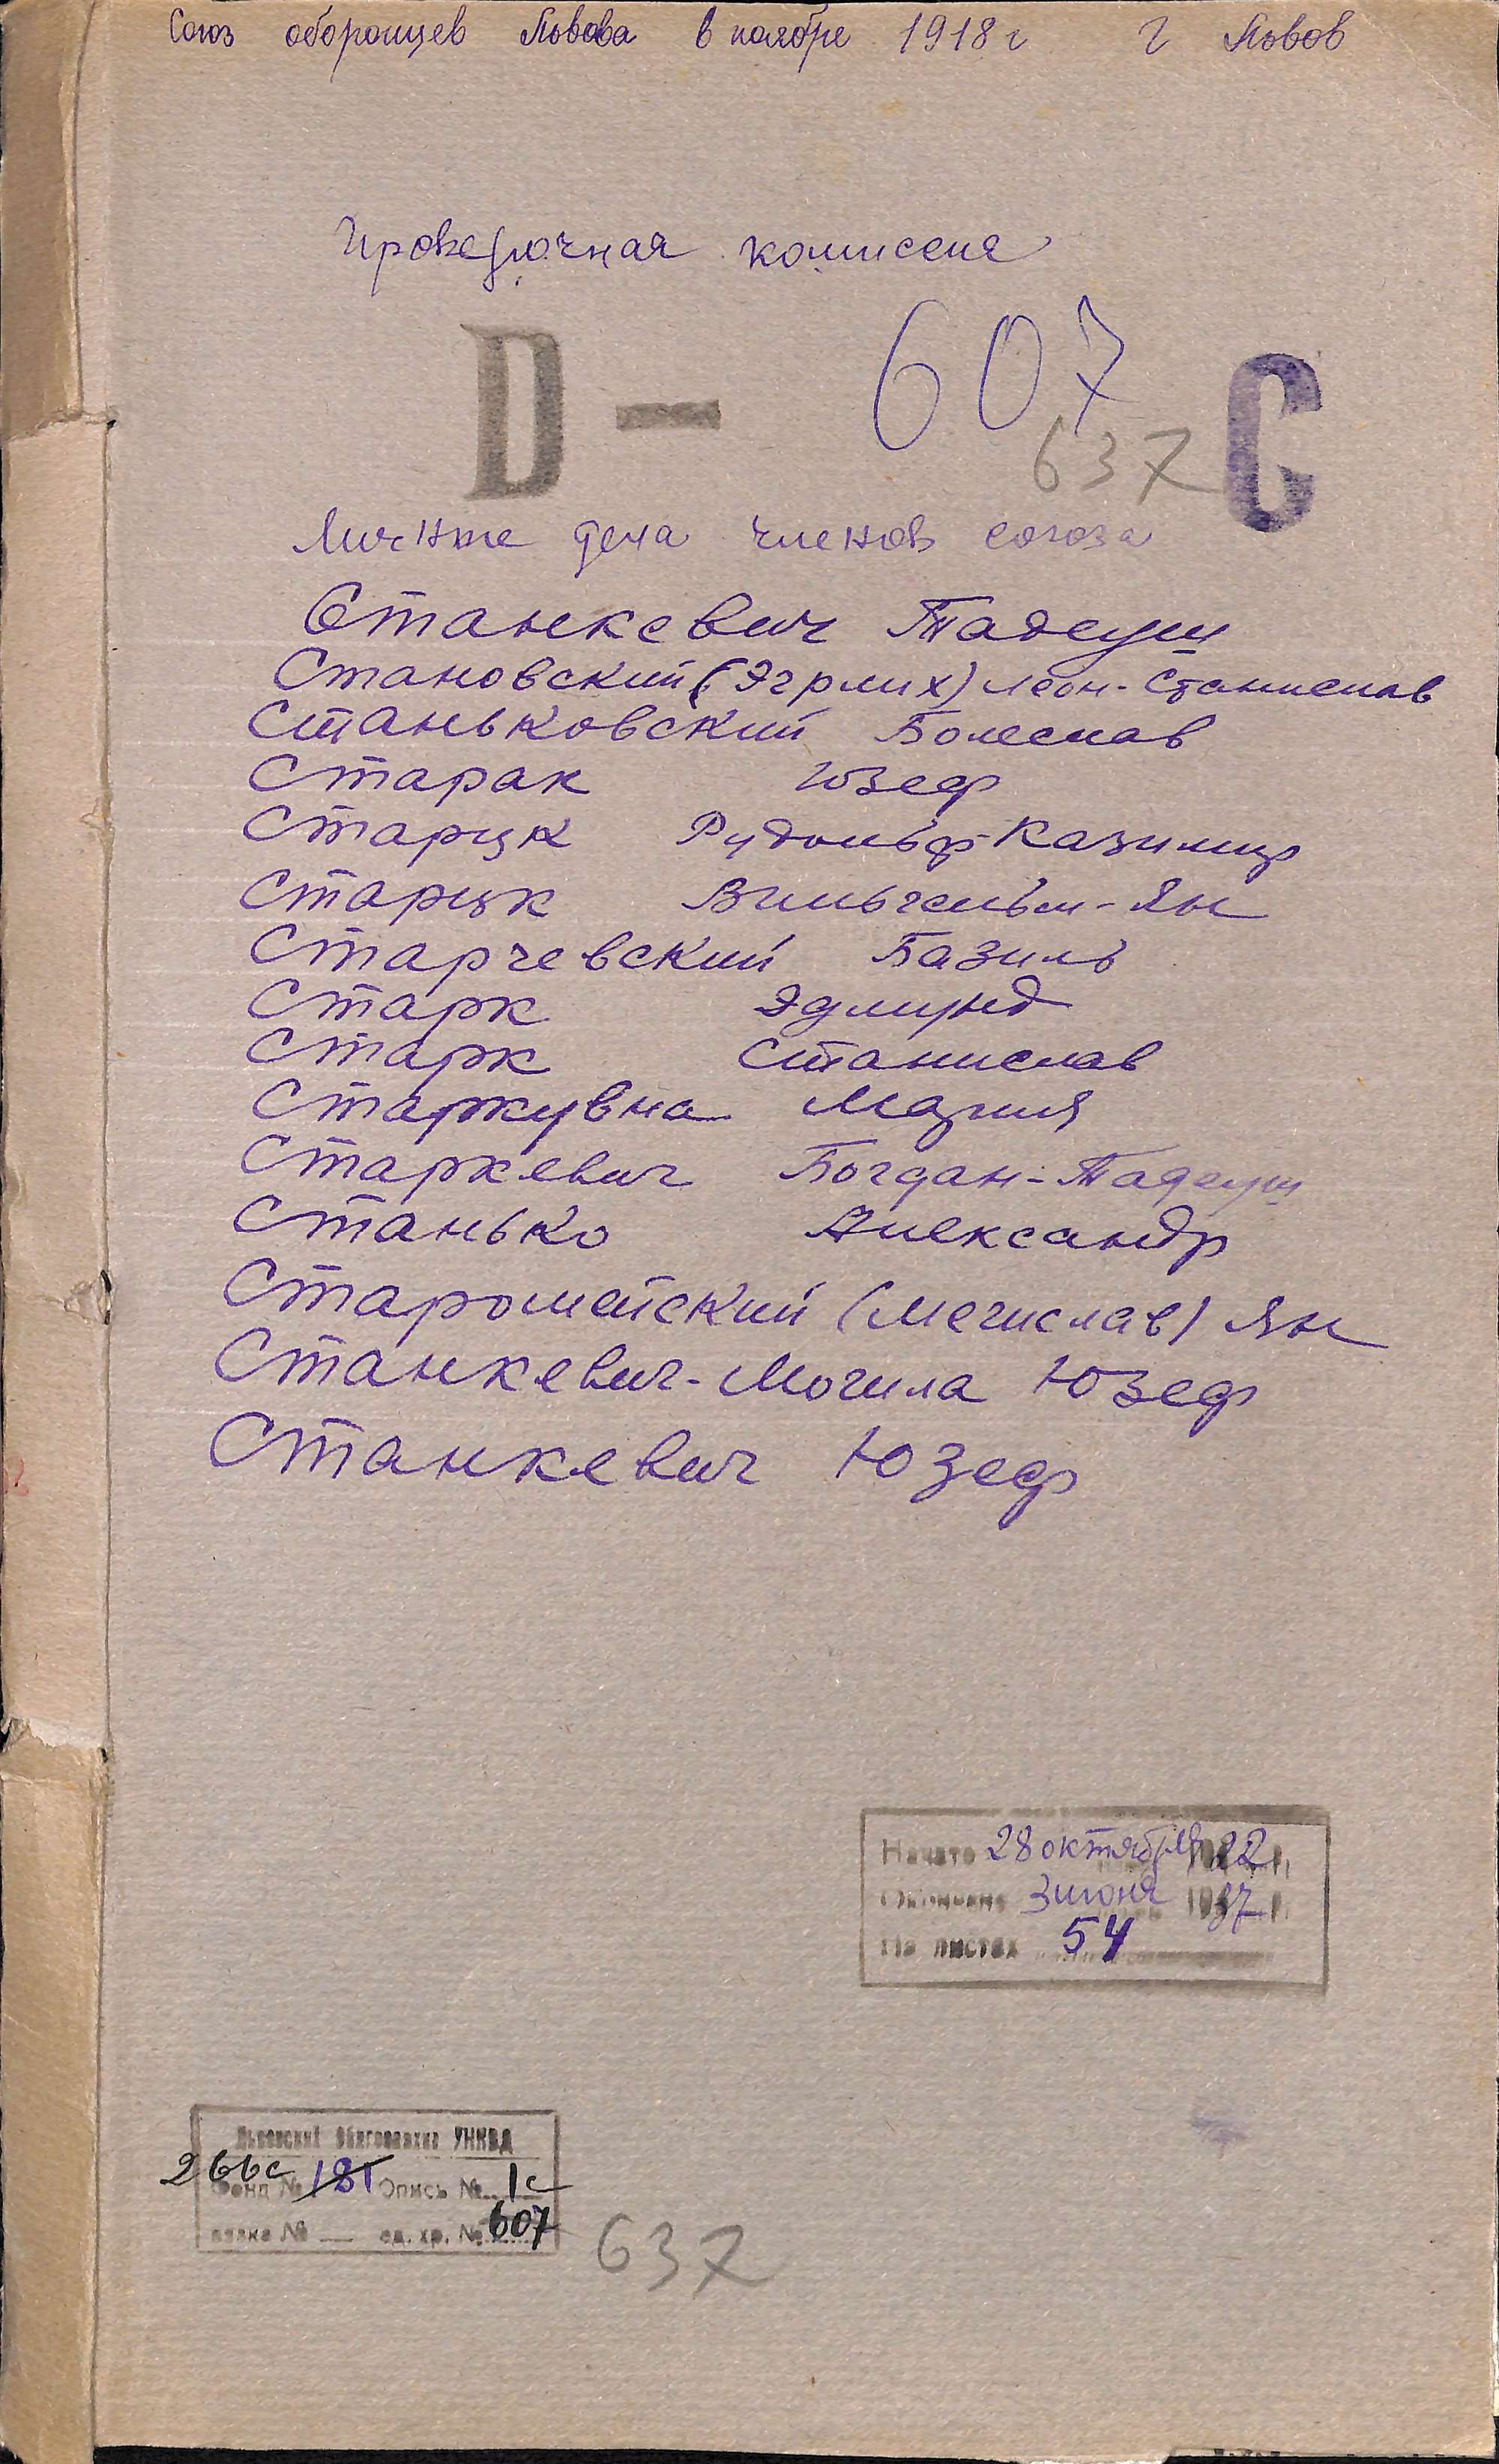 Союз оборонцев Львова в ноябре 1918 г г Львов
Проверочная комиссия
D — 607 C
637
Личные дела членов союза
Станкевич Тадеуш
Становский (Эгрлих) Леон-Станислав
Станьковский Болеслав
Старак Юзеф
Старцк Рудольф-Казимир
Старцк Вильгельм-Ян
Старчевский Базиль
Старк Эдмунд
Старк Станислав
Старкувна Мария
Старкевич Богдан-Тадеуш
Станько Александр
Старомейский (Мечислав) Ян
Станкевич-Могила Юзеф
Станкевич Юзеф
Начато 28 октября 1922 г.
Окончено 3 июня 1937 г.
На листах 54
Львовский Облгосархив УНКВД
266с Фонд № 181 Опись № 1с
вязка № — ед. хр. № 607
637